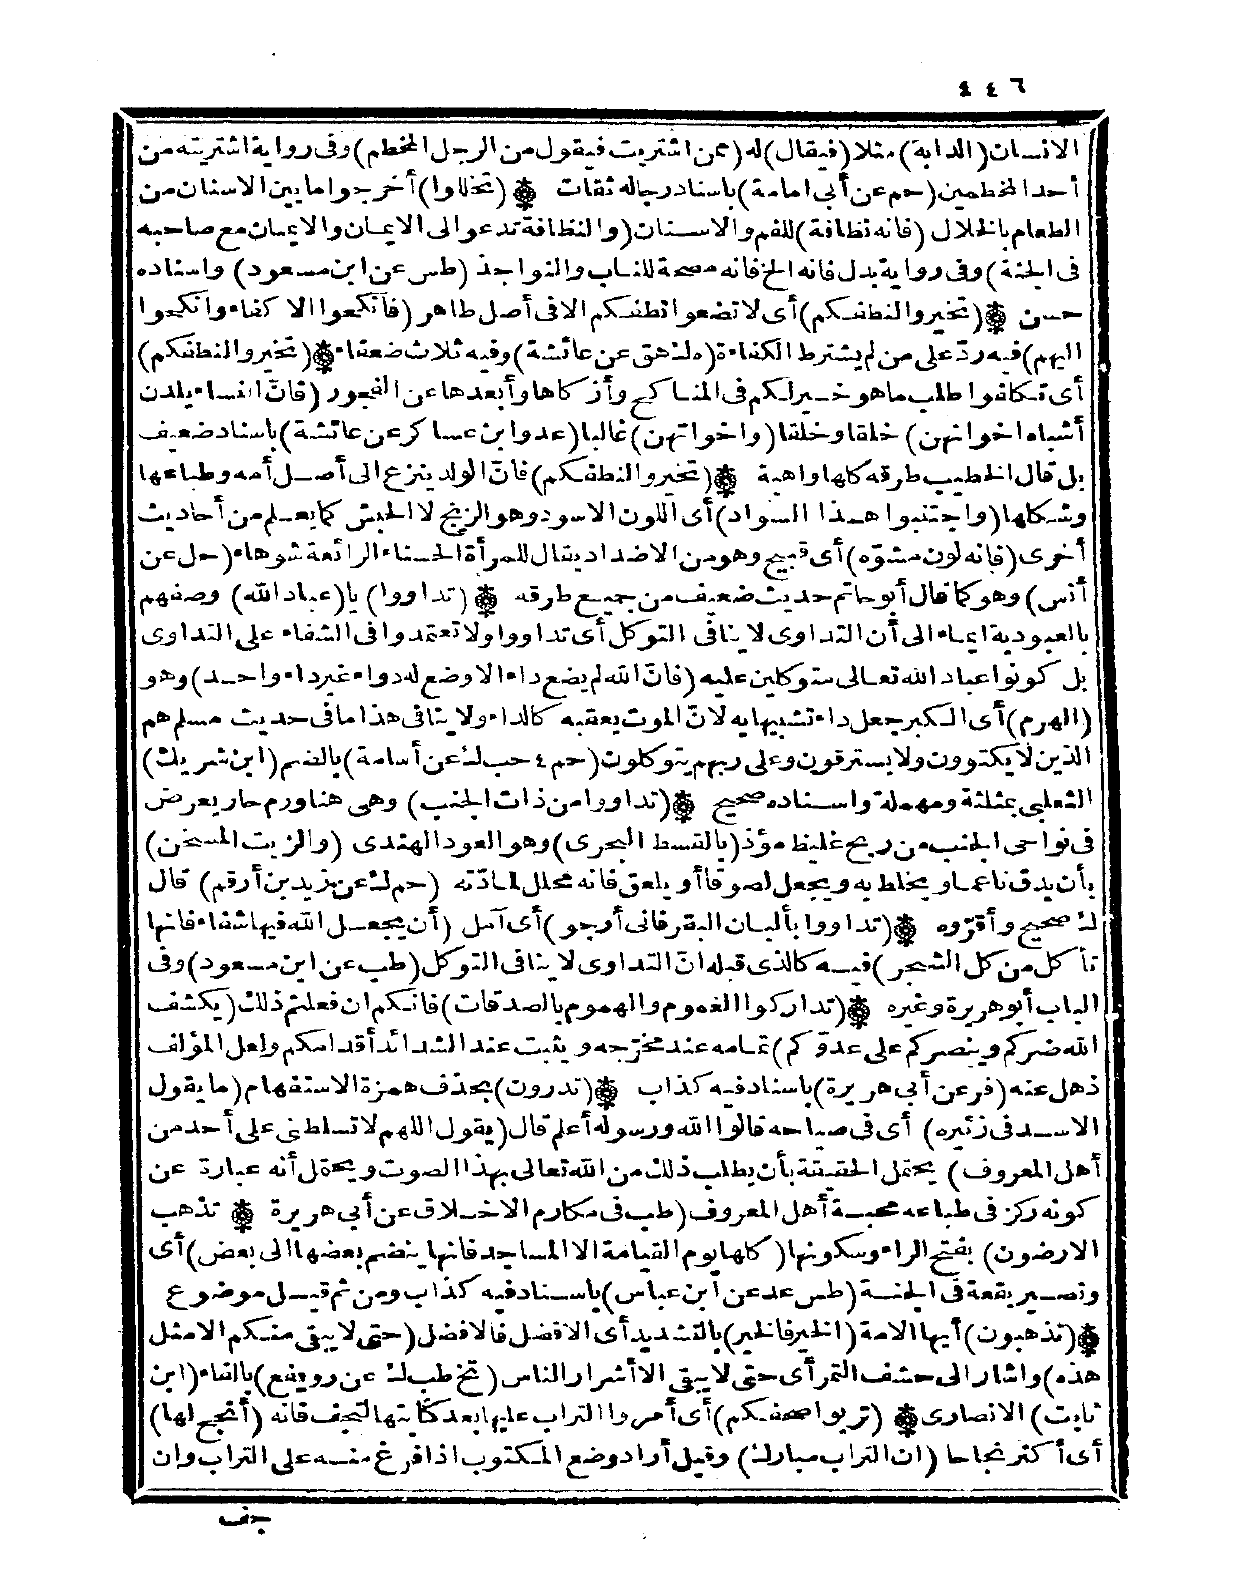 ٤٤٦
الانسان (الدابة) مثلا (فيقال) له (ممن اشتريت فيقول من الرجل المخطم) وفى رواية اشتريته من
أحد المخطمين (حم عن أبى امامة) باسناد رجاله ثقات ❁ (تخللوا) أخرجوا ما بين الاسنان من
الطعام بالخلال (فانه نظافة) للفم والاسنان (والنظافة تدعو الى الايمان والايمان مع صاحبه
فى الجنة) وفى رواية بدل فانه الخ فانه مصحة للناب والنواجذ (طس عن ابن مسعود) واسناده
حسن ❁ (تخيروا لنطفكم) أى لا تضعوا نطفكم الا فى أصل طاهر (فأنكحوا الا كفاء وأنكحوا
اليهم) فيه ردّ على من لم يشترط الكفاءة (ه ك هق عن عائشة) وفيه ثلاث ضعفاء ❁ (تخيروا لنطفكم)
أى تكافوا طلب ما هو خير لكم فى المناكح وأزكاها وأبعدها عن الفجور (فانّ النساء يلدن
أشباه اخوانهن) خلقا وخلقا (واخواتهن) غالبا (عد وابن عساكر عن عائشة) باسناد ضعيف
بل قال الخطيب طرقه كلها واهية ❁ (تخيروا لنطفكم) فانّ الولد ينزع الى أصل أمه وطباعها
وشكلها (واجتنبوا هذا السواد) أى اللون الاسود وهو الزنج لا الحبش كما يعلم من أحاديث
أخرى (فانه لون مشوّه) أى قبيح وهو من الاضداد يقال للمرأة الحسناء الرائعة شوهاء (حل عن
أنس) وهو كما قال أبو حاتم حديث ضعيف من جميع طرقه ❁ (تداووا) يا (عباد الله) وصفهم
بالعبودية ايماء الى أن التداوى لا ينافى التوكل أى تداووا ولا تعتمدوا فى الشفاء على التداوى
بل كونوا عباد الله تعالى متوكلين عليه (فانّ الله لم يضع داء الا وضع له دواء غير داء واحد) وهو
(الهرم) أى الكبر جعل داء تشبيها به لانّ الموت يعقبه كالداء ولا ينافى هذا ما فى حديث مسلم هم
الذين لا يكتوون ولا يسترقون وعلى ربهم يتوكلون (حم ٤ حب ك عن أسامة) بالضم (ابن شريك)
الثعلبى بمثلثة ومهملة واسناده صحيح ❁ (تداووا من ذات الجنب) وهى هنا ورم حار يعرض
فى نواحى الجنب من ريح غليظ مؤذ (بالقسط البحرى) وهو العود الهندى (والزيت المسخن)
بأن يدق ناعما ويخلط به ويجعل لصوقا أو يلعق فانه محلل لمادّته (حم ك عن زيد بن أرقم) قال
ك صحيح وأقرّوه ❁ (تداووا بألبان البقر فانى أرجو) أى آمل (أن يجعل الله فيها شفاء فانها
تأكل من كل الشجر) فيه كالذى قبله انّ التداوى لا ينافى التوكل (طب عن ابن مسعود) وفى
الباب أبو هريرة وغيره ❁ (تداركوا الغموم والهموم بالصدقات) فانكم ان فعلتم ذلك (يكشف
الله ضركم وينصركم على عدوّكم) تمامه عند مخرّجه ويثبت عند الشدائد أقدامكم ولعل المؤلف
ذهل عنه (فر عن أبى هريرة) باسناد فيه كذاب ❁ (تدرون) بحذف همزة الاستفهام (ما يقول
الاسد فى زئيره) أى فى صياحه قالوا الله ورسوله أعلم قال (يقول اللهم لا تسلطنى على أحد من
أهل المعروف) يحتمل الحقيقة بأن يطلب ذلك من الله تعالى بهذا الصوت ويحتمل أنه عبارة عن
كونه ركز فى طباعه محبة أهل المعروف (طب فى مكارم الاخلاق عن أبى هريرة ❁ تذهب
الارضون) بفتح الراء وسكونها (كلها يوم القيامة الا المساجد فانها ينضم بعضها الى بعض) أى
وتصير بقعة فى الجنة (طس عد عن ابن عباس) باسناد فيه كذاب ومن ثم قيل موضوع
❁ (تذهبون) أيها الامة (الخير فالخير) بالتشديد أى الافضل فالافضل (حتى لا يبقى منكم الا مثل
هذه) واشار الى حشف التمر أى حتى لا يبقى الا أشرار الناس (تخ طب ك عن رويفع) بالفاء (ابن
ثابت) الانصارى ❁ (تربوا صحفكم) أى أمروا التراب عليها بعد كتابتها لتجف فانه (أنجح لها)
أى أكثر نجاحا (ان التراب مبارك) وقيل أراد وضع المكتوب اذا فرغ منه على التراب وان
جف